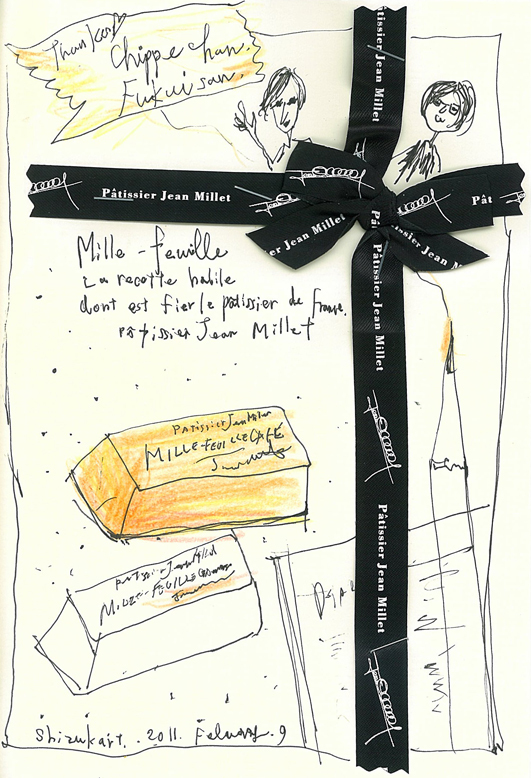 Thanks
Chippe chan.
Fukui san.
Pâtissier Jean Millet
Pâtissier Jean Millet
Pât
er Jean Millet
Pâtissier Jean Millet
Mille-feuille
La recette habile
dont est fier le pâtissier de france.
pâtissier Jean Millet
PATISSIER Jean Millet
MILLE-FEUILLE CAFÉ
Pâtissier Jean Millet
MILLE-FEUILLE
Pâtissier Jean Millet
Shizukart. 2011. February. 9